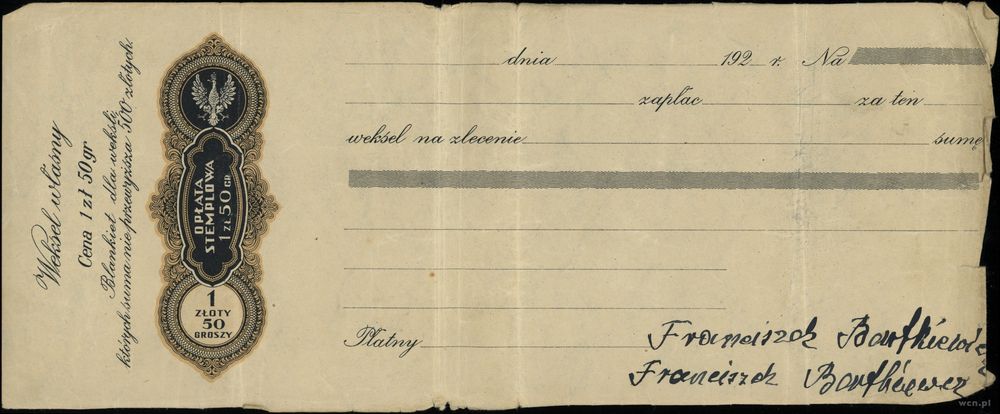 Weksel własny
Cena 1 zł 50 gr
Blankiet dla weksli,
których suma nie przewyższa 500 złotych.
OPŁATA
STEMPLOWA
1 ZŁ 50 GR
1
ZŁOTY
50
GROSZY
dnia 192 r. Na
zapłac za ten
weksel na zlecenie sumę
Płatny
Franciszek Bartkiewicz
Franciszek Bartkiewicz
wcn.pl